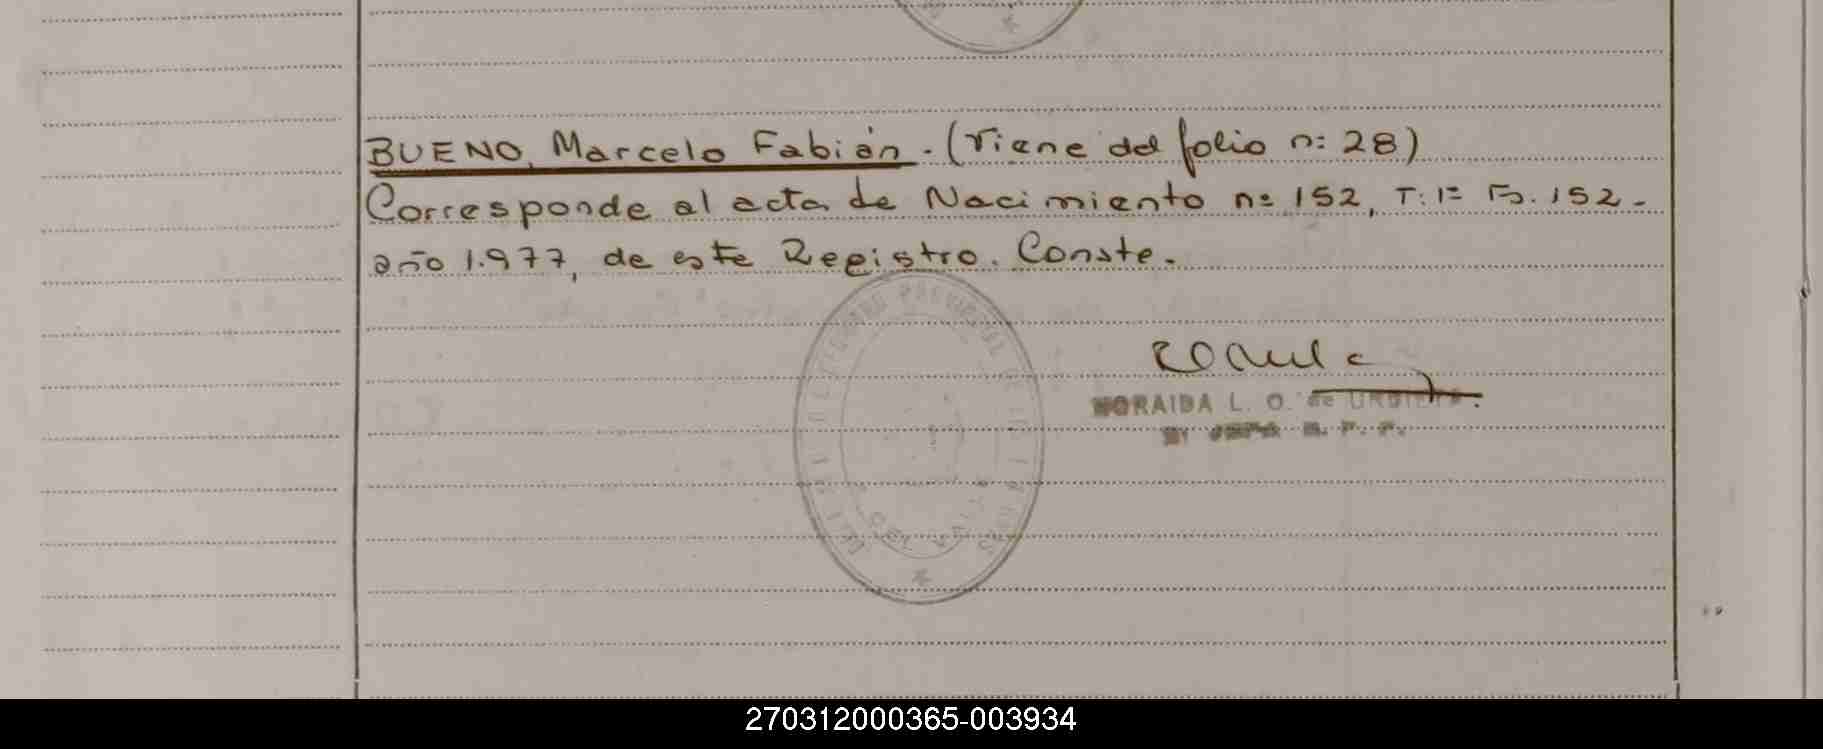 BUENO, Marcelo Fabián. (Viene del folio n: 28)
Corresponde al acta de Nacimiento nº 152, T: 1º Fo. 152-
año 1.977, de este Registro. Conste.
NORAIDA L. O. de
270312000365-003934